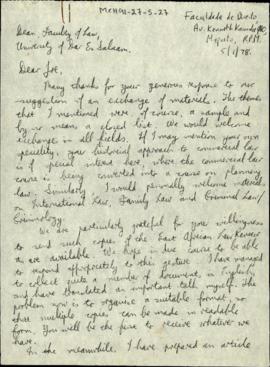 MCH01-27-5-27
Faculdade de Direito
Av. Kenneth Kaunda
Maputo, R.P.M.
5/1/78.
Dean, Faculty of Law,
University of Dar Es Salaam.
Dear Joe,
Many thanks for your generous response to our
suggestion of an exchange of material. The themes
that I mentioned were of course, a sample and
by no means a closed list. We would welcome
exchange in all fields. If I may mention your own
speciality, your historical approach to commercial law
is of special interest here, where the commercial law
course is being converted into a course on planning
law. Similarly I would personally welcome material
on International Law, Family Law and Criminal Law/
Criminology.
We are particularly grateful for your willingness
to send such copies of the East African Law Review
as are available. We hope in due course to be able
to respond appropriately to this gesture. I have managed
to collect quite a number of documents in English,
and have translated an important talk myself. The
problem now is to organise a suitable format, so
that multiple copies can be made in readable
form. You will be the first to receive whatever we
have.
In the meanwhile, I have prepared an article